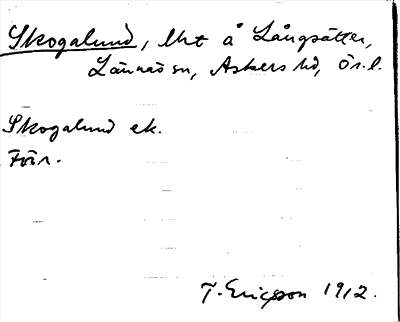 Skogalund, lht å Långsätter,
Lännäs sn, Askers hd, Ör.l.
Skogalund ek.
Förr.
T. Ericsson 1912.